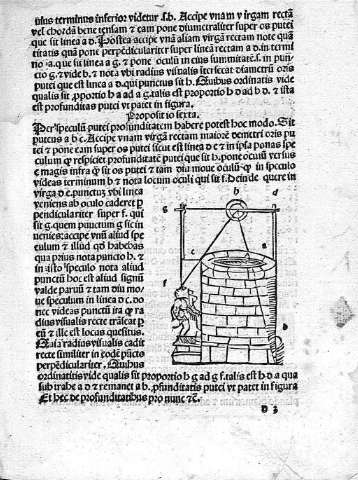 uius terminus inferior videtur s.b. Accipe vnam virgam rectā
vel chordā bene tensam & eam pone diametraliter super os putei
que sit linea a d. Postea accipe vnā aliam virgā rectam note quā
titatis quā pone perpēdiculariter super lineā rectam a d. in termi
no .a. que sit linea a g. & pone oculū in eius summitate .s. in pun
cto g. & vide b. & nota vbi radius visualis intersecat diametrū oris
putei que est linea a d. qui punctus sit h. Quibus ordinatis vide
qualis sit proportio h a ad a g. talis est proportio h d ad b d. & ista
est profunditas putei vt patet in figura.
Propositio sexta.
Per speculū putei profunditatem habere potest hoc modo. Sit
puteus a b c. Accipe vnā virgam rectam maiorē demetri oris pu
tei & pone eam super os putei sicut est linea d e & in ipsa ponas spe
culum qd respiciet profunditatē putei que sit b. pone oculū versus
e magis infra qd sit os putei & tam diu moue oculū qd in speculo
videas terminum b & nota locum oculi qui sit f. Deinde quere in
virga d e. punctuz vbi linea
veniens ab oculo caderet p
pendiculariter super f. qui
sit g. quem punctum g sic in
uenies: accipe vnū aliud spe
culum & illud qd habebas
qua prius nota puncto h. &
in isto speculo nota aliud
punctū hoc est aliud signū
valde paruū & tam diu mo
ue speculum in linea d e. do
nec videas punctū ita qd ra
dius visualis recte trāseat p
tū & ille est locus quesitus.
Nā ia radius visualis cadit
recte similiter in eodē pūcto
perpēdiculariter. Quibus
ordinatis vide qualis sit proportio h g ad g f. talis est h d a qua
sub trahe a d & remanet a b. pfunditas putei vt patet in figura
Et hec de profunditatibus pro nunc &c.
g
h
d
a
e
f
c
b
D 3